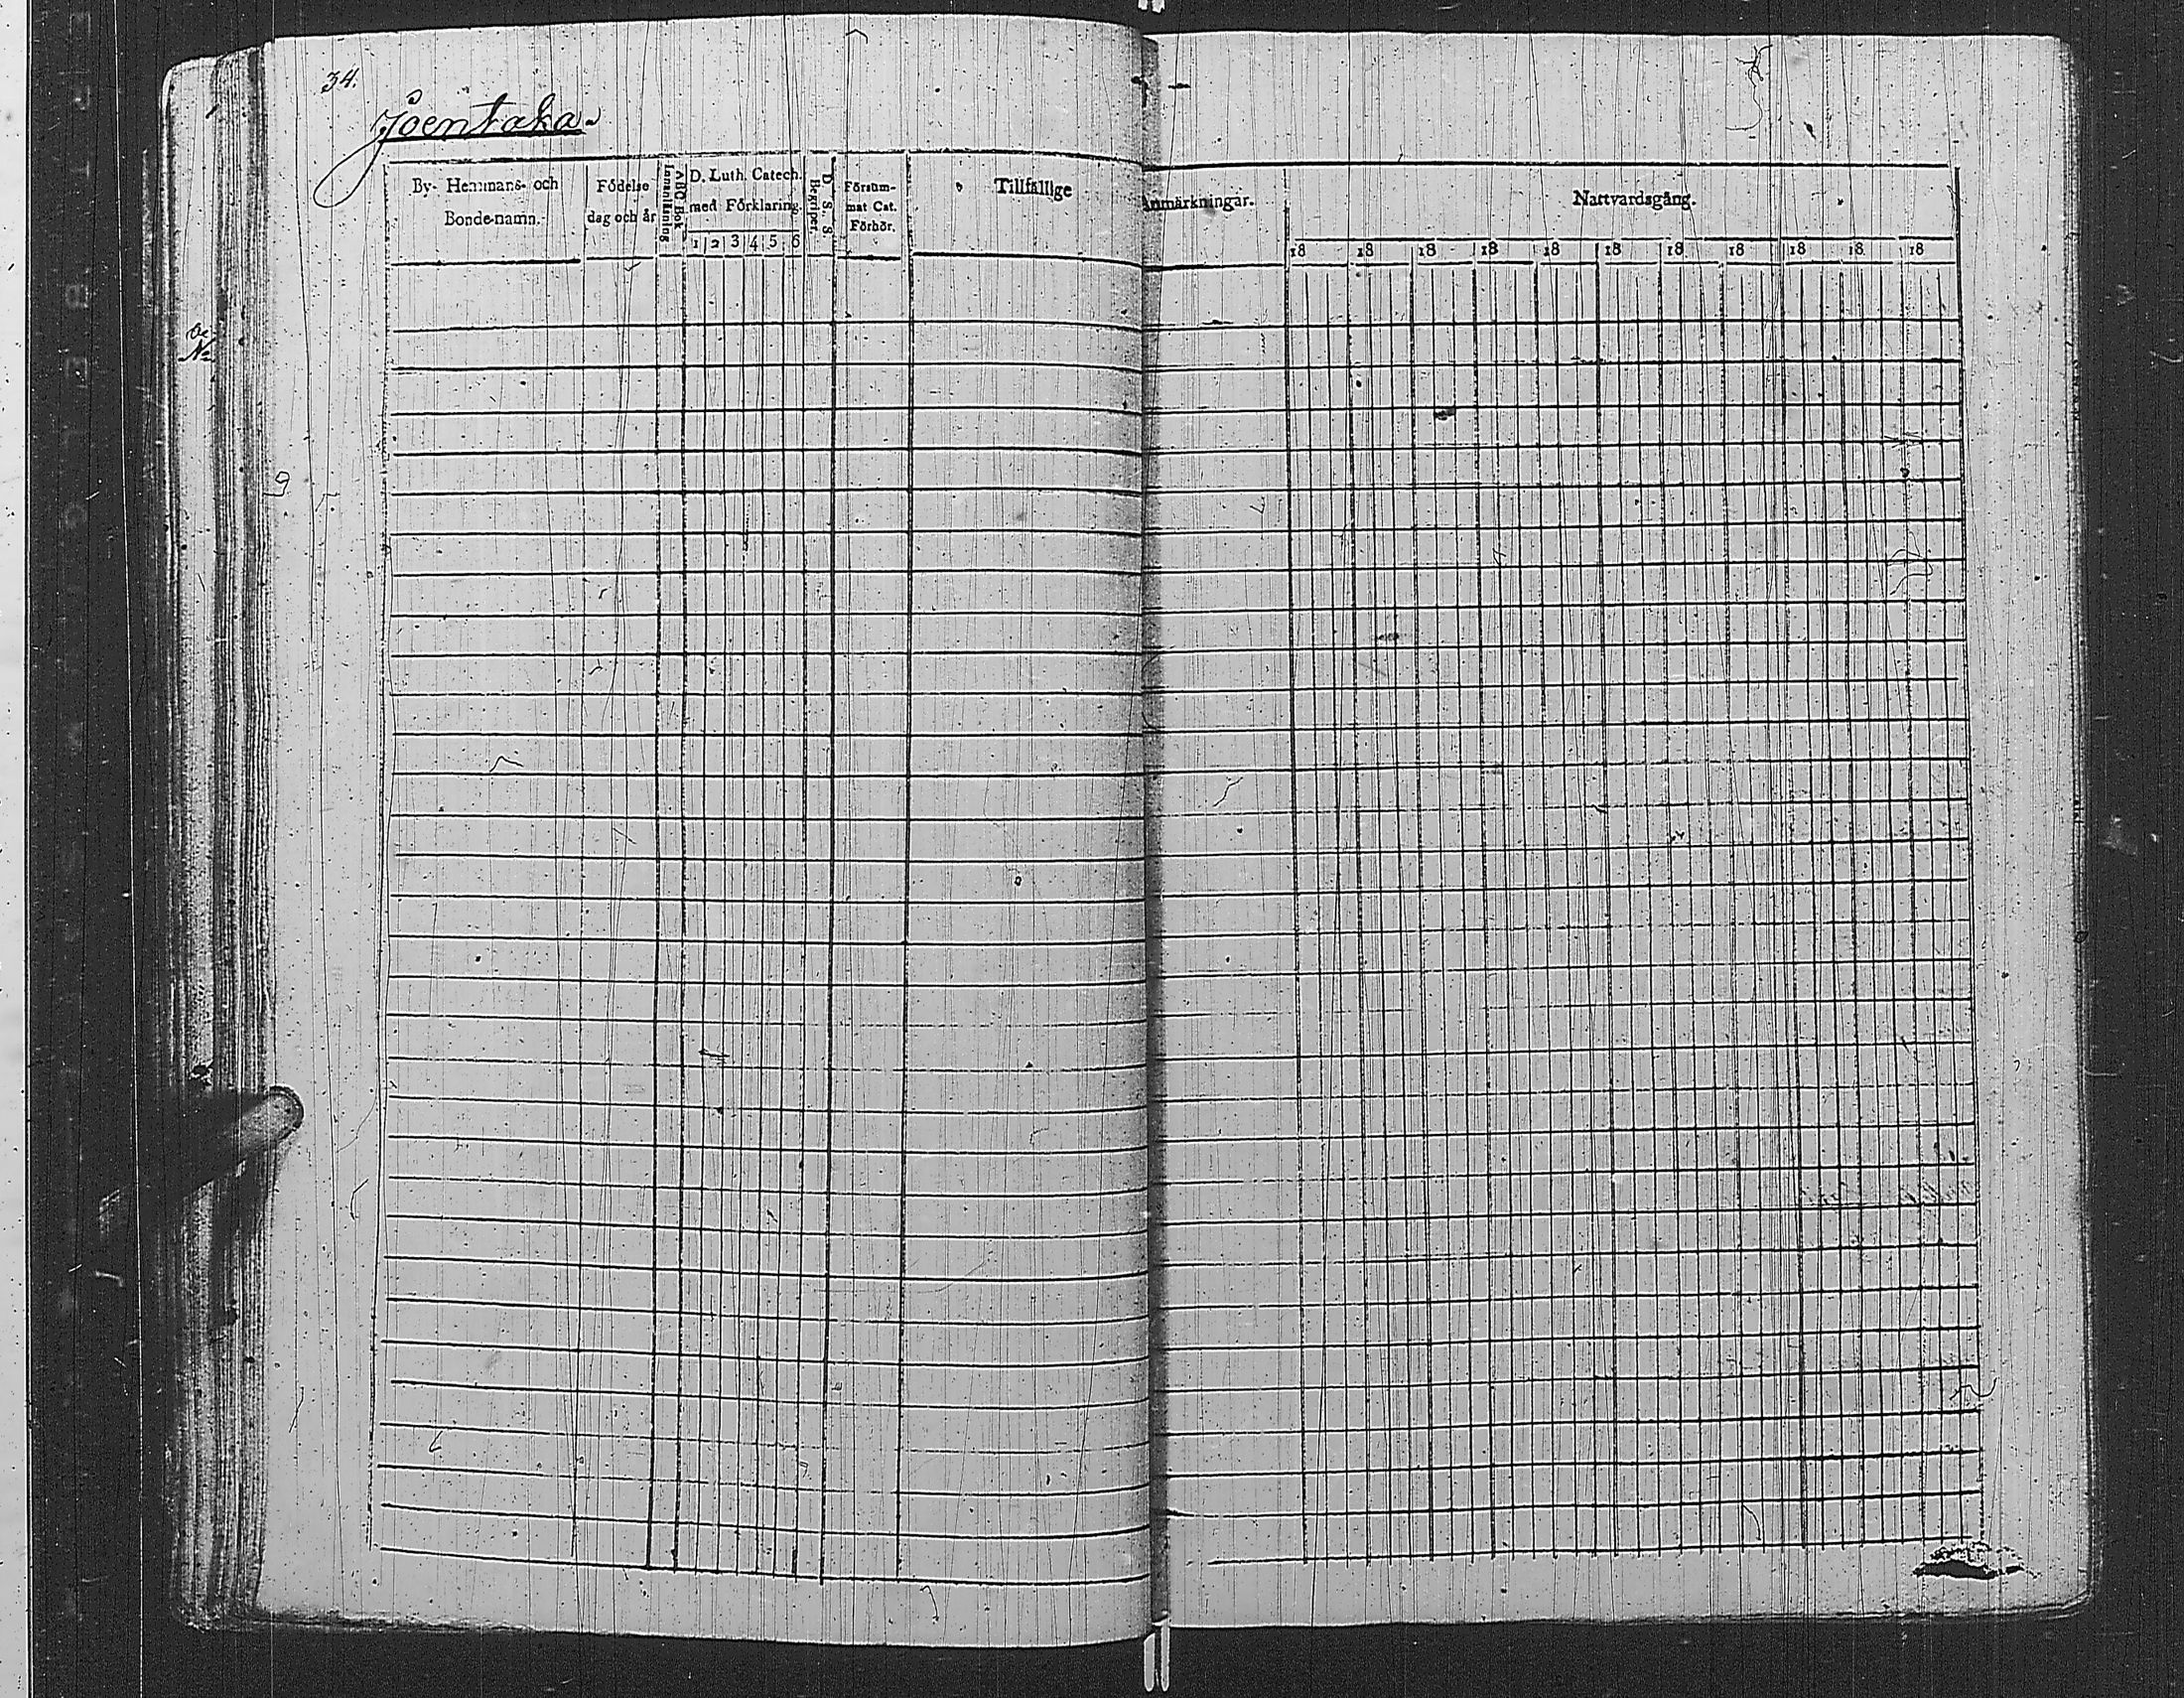 34.
Joentaka.
By- Hemmans- och Bondenamn.
Födelse dag och år
ABC Bok Innanläsning
D. Luth. Catech. med Förklaring.
1 2 3 4 5 6
D. S. S. Begriper.
Försum-
mat Cat.
Förhör.
Tillfällige Anmärkningar.
Nattvardsgång.
18 18 18 18 18 18 18 18 18 18 18